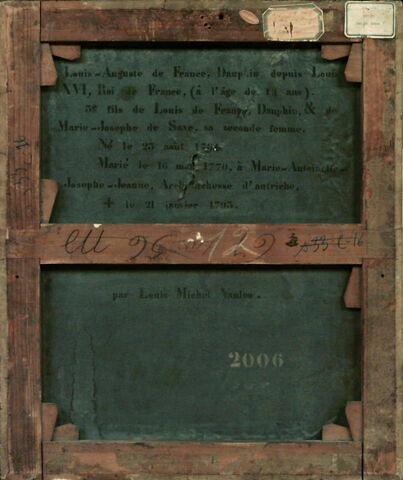 Louis-Auguste de France, Dauphin depuis Louis
XVI, Roi de France, (à l'âge de 14 ans).
3e fils de Louis de France, Dauphin, & de
Marie-Josephe de Saxe, sa seconde femme.
Né le 23 août
Marié le 16 mai 1770, à Marie-Antoinette-
Josephe-Jeanne, Archiduchesse d'autriche,
✝ le 21 janvier 1793.
122
par Louis Michel Vanloo.
2006